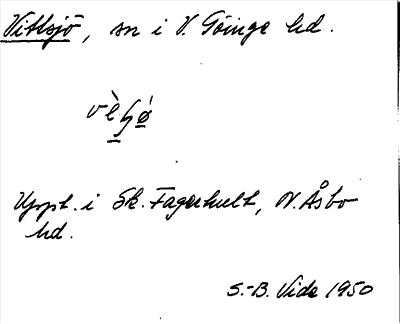 Vittsjö, sn i V. Göinge hd.
vèꞕǿ
Uppt. i Sk. Fagerhult, N. Åsbo
hd.
S.-B. Vide 1950